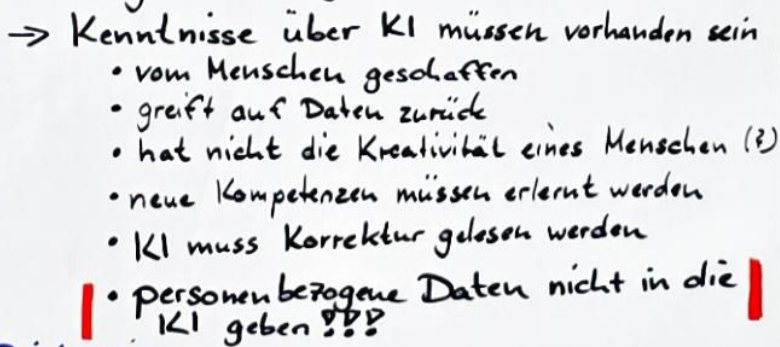 → Kenntnisse über KI müssen vorhanden sein
• vom Menschen geschaffen
• greift auf Daten zurück
• hat nicht die Kreativität eines Menschen (?)
• neue Kompetenzen müssen erlernt werden
• KI muss Korrektur gelesen werden
• personenbezogene Daten nicht in die
KI geben!!!